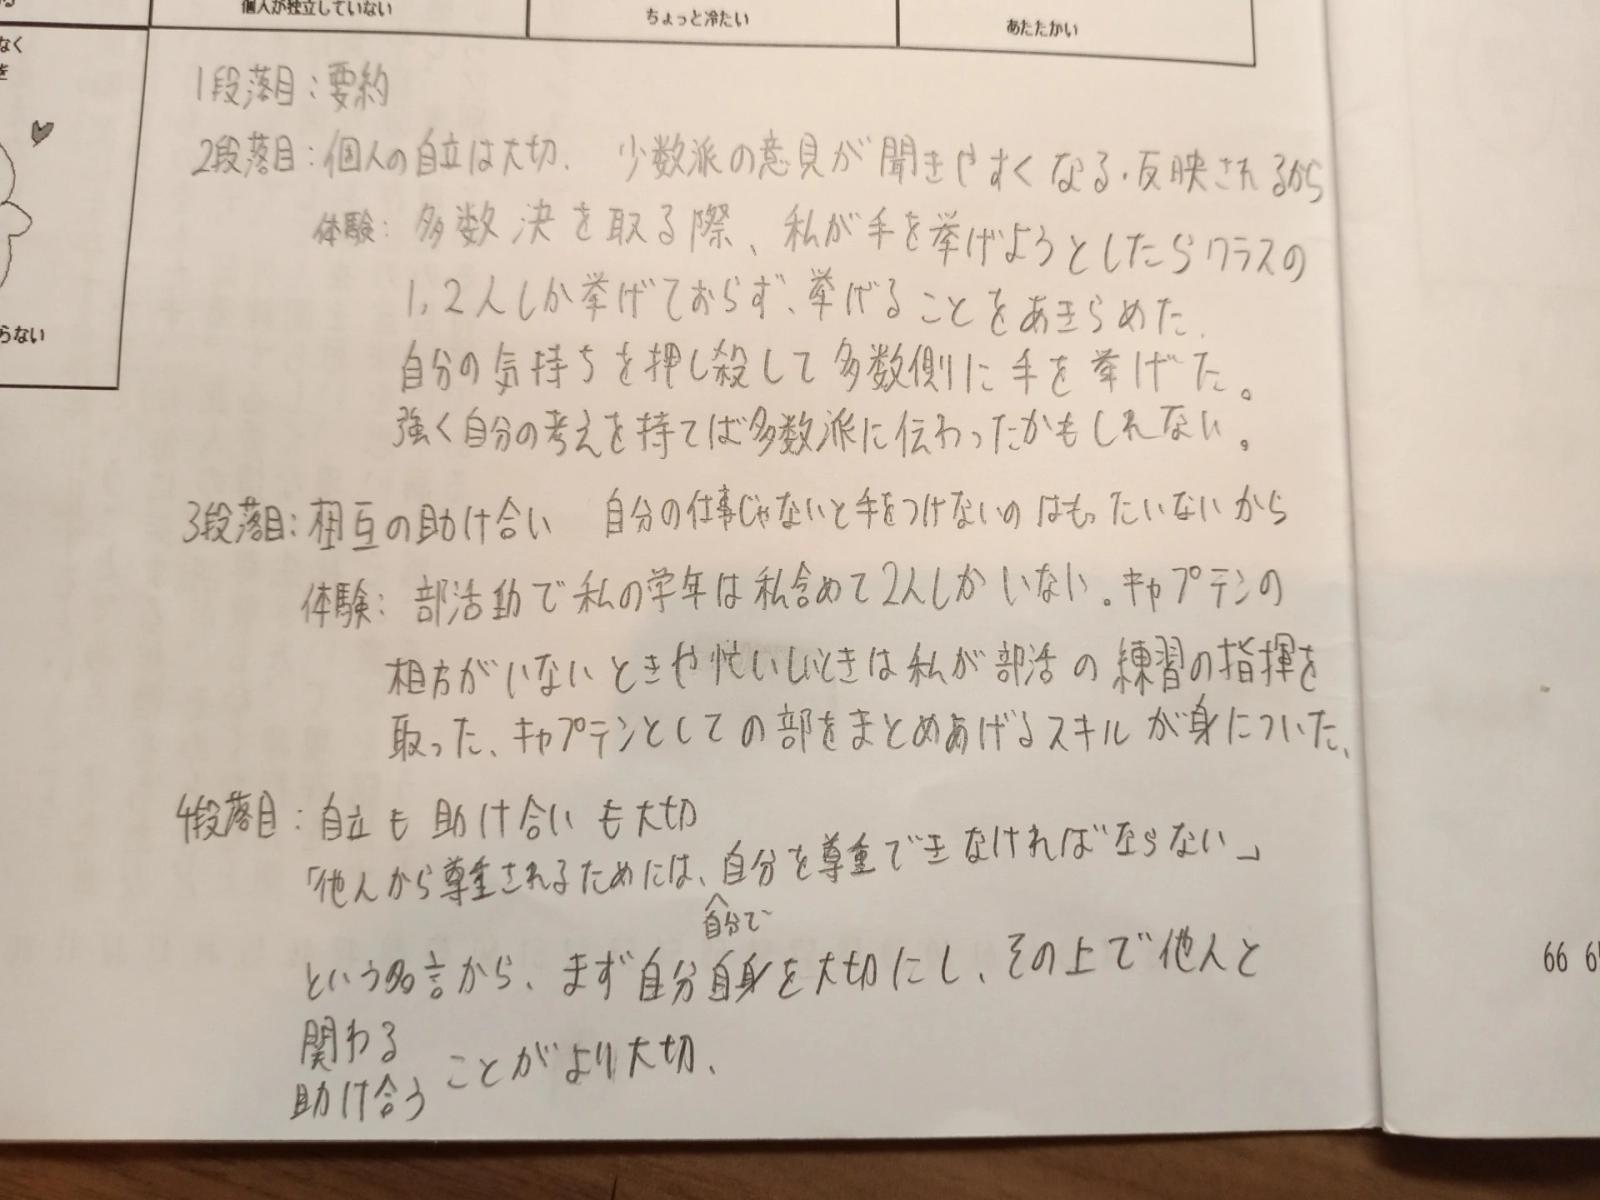 個人が独立していない
ちょっと冷たい
あたたかい
なく
を
らない
1段落目：要約
2段落目：個人の自立は大切. 少数派の意見が聞きやすくなる・反映されるから
体験：多数決を取る際、私が手を挙げようとしたらクラスの
1,2人しか挙げておらず、挙げることをあきらめた.
自分の気持ちを押し殺して多数側に手を挙げた。
強く自分の考えを持てば多数派に伝わったかもしれない。
3段落目：相互の助け合い 自分の仕事じゃないと手をつけないのはもったいないから
体験：部活動で私の学年は私含めて2人しかいない。キャプテンの
相方がいないときや忙しいときは私が部活の練習の指揮を
取った、キャプテンとしての部をまとめあげるスキルが身についた、
4段落目：自立も助け合いも大切
「他人から尊重されるためには、自分を尊重できなければならない」
自分で
という名言から、まず自分自身を大切にし、その上で他人と
関わる
助け合う ことがより大切.
66